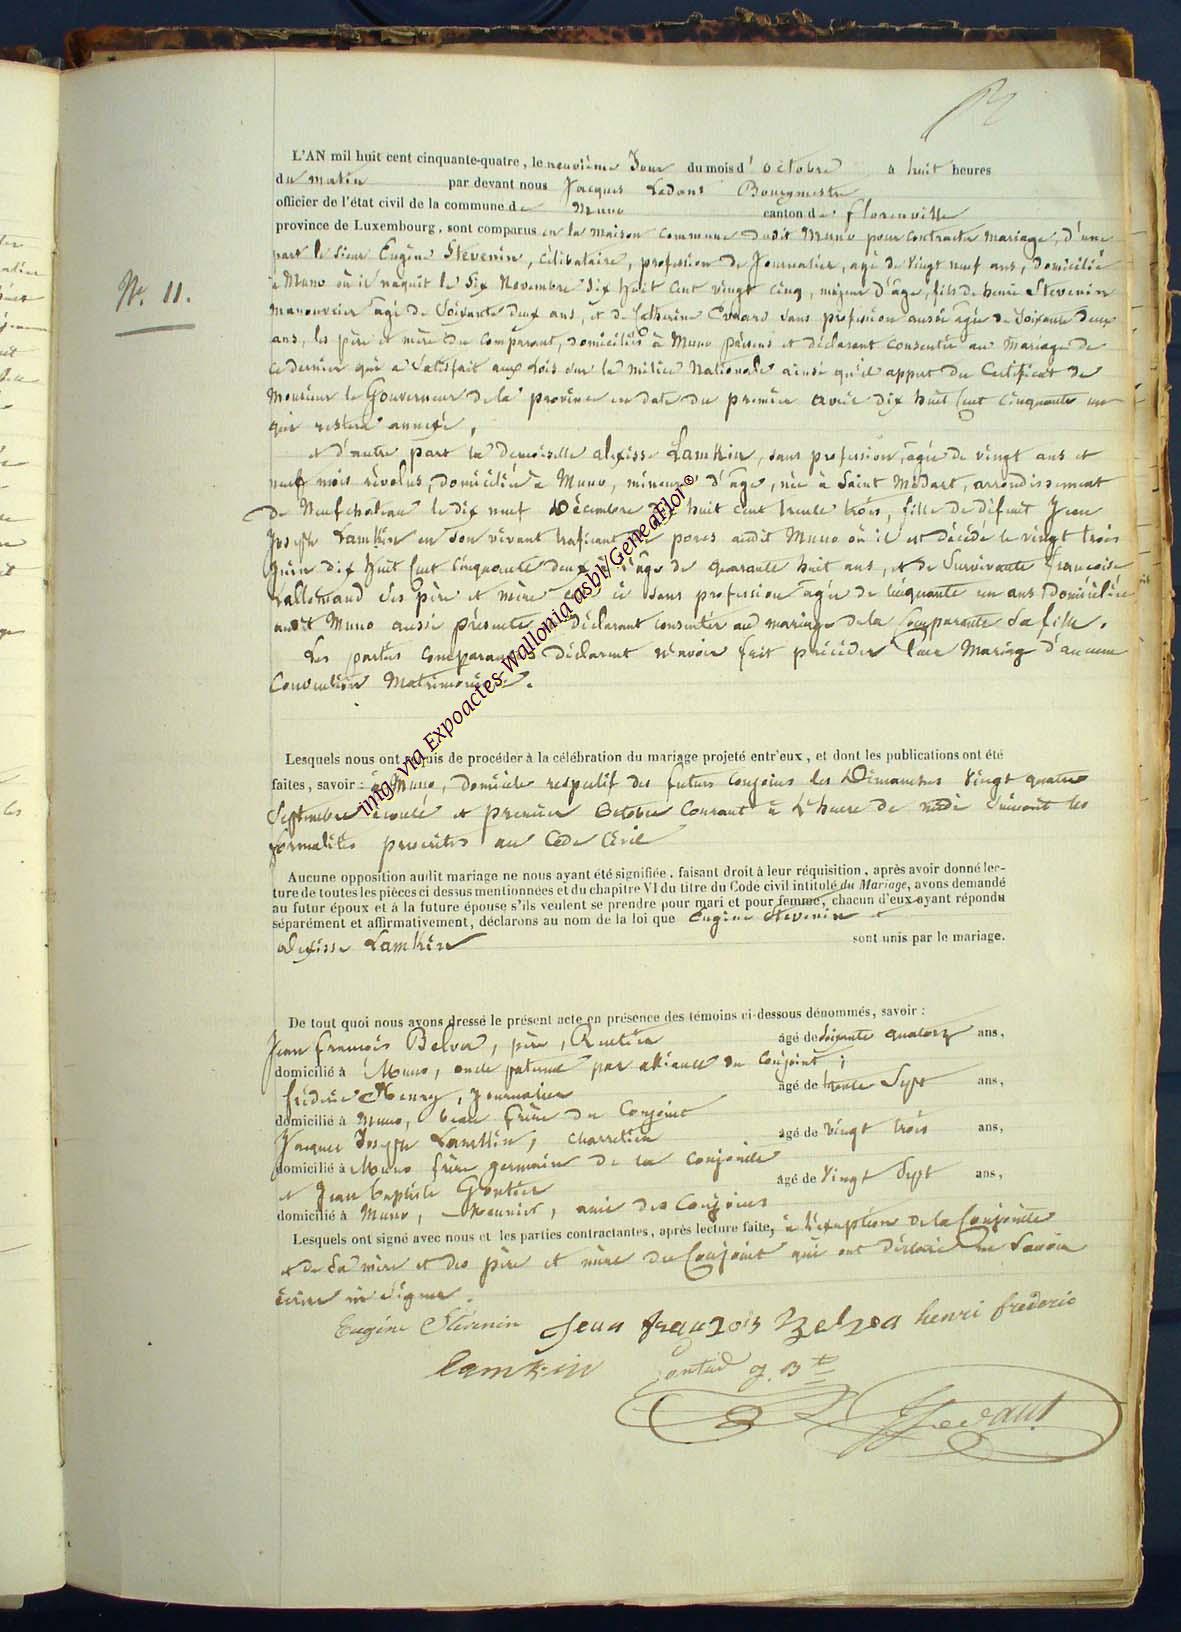 N.° 11.
L'AN mil huit cent cinquante-quatre, le neuvième Jour du mois d'octobre à huit heures
du matin par devant nous Jacques Ledant Bourgmestre
officier de l'état civil de la commune de Muno canton de Florenville
province de Luxembourg, sont comparus en la maison Commune dudit Muno pour contracter mariage, d'une
part le Sieur Eugène Stévenin, célibataire, profession de Journalier, agé de Vingt neuf ans, domicilié
à Muno où il naquit le Six Novembre dix huit Cent vingt cinq, majeur d'âge, fils de henri Stevenin
manouvrier agé de Soixante deux ans, et de Catherine Evrard sans profession aussi agée de Soixante deux
ans, les père et mère du Comparant, domiciliés à Muno présens et déclarant consentir au Mariage de
ce dernier qui a Satisfait aux Lois sur la milice Nationale ainsi qu'il appert du Certificat de
Monsieur le Gouverneur de la province en date du premier avril dix huit Cent Cinquante un
qui restera annexé,
et d'autre part la Demoiselle alexisse Lamkin, sans profession, agée de vingt ans et
neuf mois révolus, domiciliée à Muno, mineure d'âge, née à Saint Médart, arrondissement
de Neufchateau le dix neuf Décembre dix huit cent trente trois, fille de défunt Jean
Joseph Lamkin en son vivant traficant de porcs audit Muno où il est décédé le vingt trois
Juin dix huit Cent Cinquante deux à l'âge de quarante huit ans, et de Survivante françoise
Lallemand Ses père et mère celle ci sans profession agée de Cinquante un ans Domiciliée
audit Muno aussi présente et déclarant Consentir au mariage de la Comparante Sa fille.
Les parties comparantes déclarent n'avoir fait précéder leur Mariage d'aucune
Convention Matrimoniale.
Lesquels nous ont requis de procéder à la célébration du mariage projeté entr'eux, et dont les publications ont été
faites, savoir: à Muno, domicile respectif des futurs Conjoins les Dimanches Vingt quatre
Septembre écoulé et premier Octobre Courant à L'heure de midi suivant les
formalités prescrites au Code Civil
Aucune opposition audit mariage ne nous ayant été signifiée, faisant droit à leur réquisition, après avoir donné lec-
ture de toutes les pièces ci dessus mentionnées et du chapitre VI du titre du Code civil intitulé du Mariage, avons demandé
au futur époux et à la future épouse s'ils veulent se prendre pour mari et pour femme, chacun d'eux ayant répondu
séparément et affirmativement, déclarons au nom de la loi que Eugène Stevenin et
alexisse Lamkin sont unis par le mariage.
De tout quoi nous avons dressé le présent acte en présence des témoins ci-dessous dénommés, savoir:
Jean françois père, Rentier âgé de Soixante quatorze ans,
domicilié à Muno, oncle paternel par alliance du Conjoint;
frédéric Henry, Journalier âgé de trente Sept ans,
domicilié à Muno, beau frère du Conjoint
Jacques Joseph Lamkin, charretier âgé de vingt trois ans,
domicilié à Muno frère germain de la conjointe
et Jean baptiste âgé de Vingt Sept ans,
domicilié à Muno, Meunier, ami des Conjoins
Lesquels ont signé avec nous et les parties contractantes, après lecture faite, à l'exception de la Conjointe
et de Sa mère et des père et mère du Conjoint qui ont déclaré ne Savoir
écrire ni Signer.
Eugène Stévenin Jean françois henri frederic
Lamkin J. Bte
Ledant
img via Expoactes-Wallonia asbl/GeneaFlor®